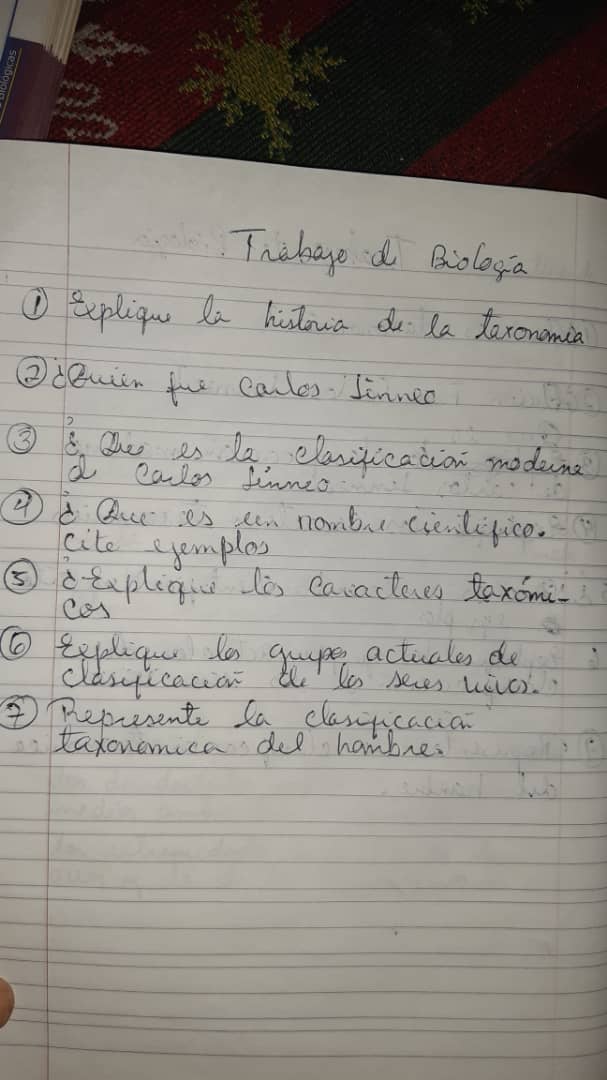 Biológicas
Trabajo de Biología
① Explique la historia de la taxonomía
② ¿Quién fue Carlos Linneo
③ ¿Que es la clasificación moderna
de Carlos Linneo
④ ¿Que es un nombre científico.
Cite ejemplos
⑤ ¿Explique los caracteres taxómi-
cos
⑥ Explique los grupos actuales de
clasificación de los seres vivos.
⑦ Represente la clasificación
taxonomica del hombre.